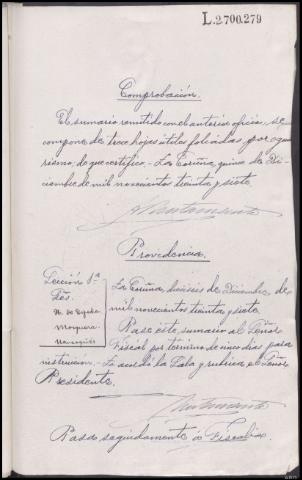 L.2700.279
Comprobación.
El sumario remitido con el anterior oficio, se
compone de trece hojas útiles foliadas, por
de que certifico.- La Coruña, quince de Di-
ciembre de mil novecientos treinta y siete
Providencia.
Sección 1ª
La Coruña, dieciseis de Diciembre de
mil novecientos treinta y siete
Pase este sumario al Señor
Fiscal por término de cinco dias para
instrucción.- Lo acordó la Sala y rubrica el Señor
Presidente.
Pasa seguidamente á Fiscalía